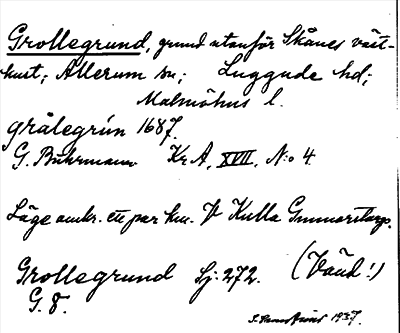 Grollegrund, grund utanför Skånes väst-
kust; Allerum sn; Luggude hd;
Malmöhus l.
grålegrún 1687.
G. Buhrmann Kr A, XVII, N:o 4.
Läge omkr. ett par km. V Kulla Gunnarstorp.
Grollegrund Sj. 272. (Vänd!)
G. 8.
1937.